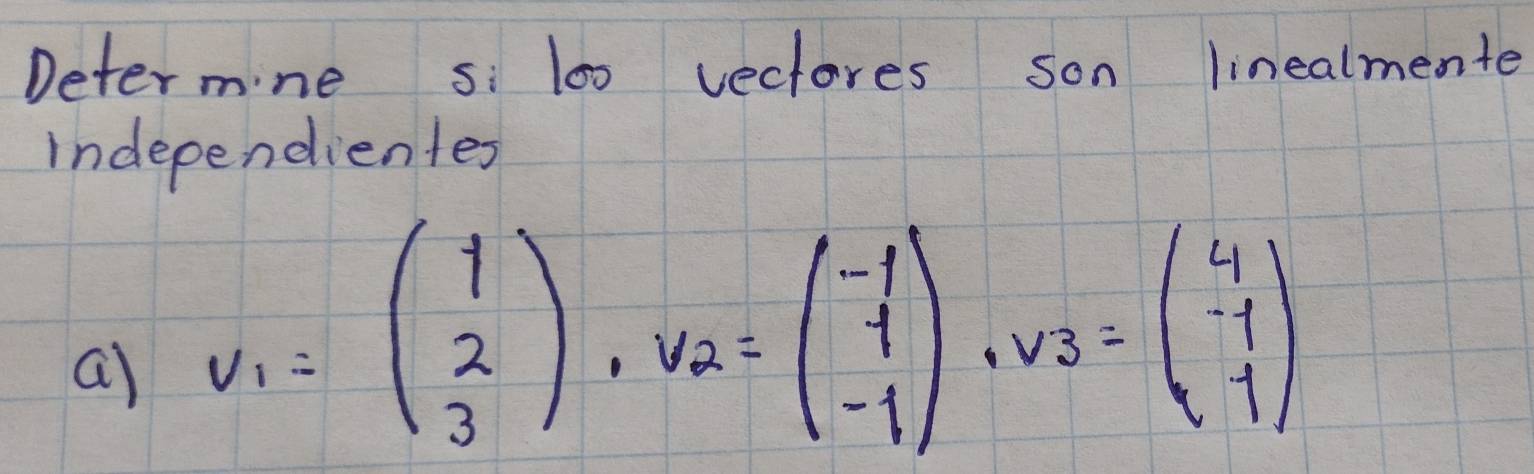 Determine si los vectores son linealmente
independientes
a) v1 = (1 2 3), v2 = (-1 1 -1), v3 = (4 -1 1)